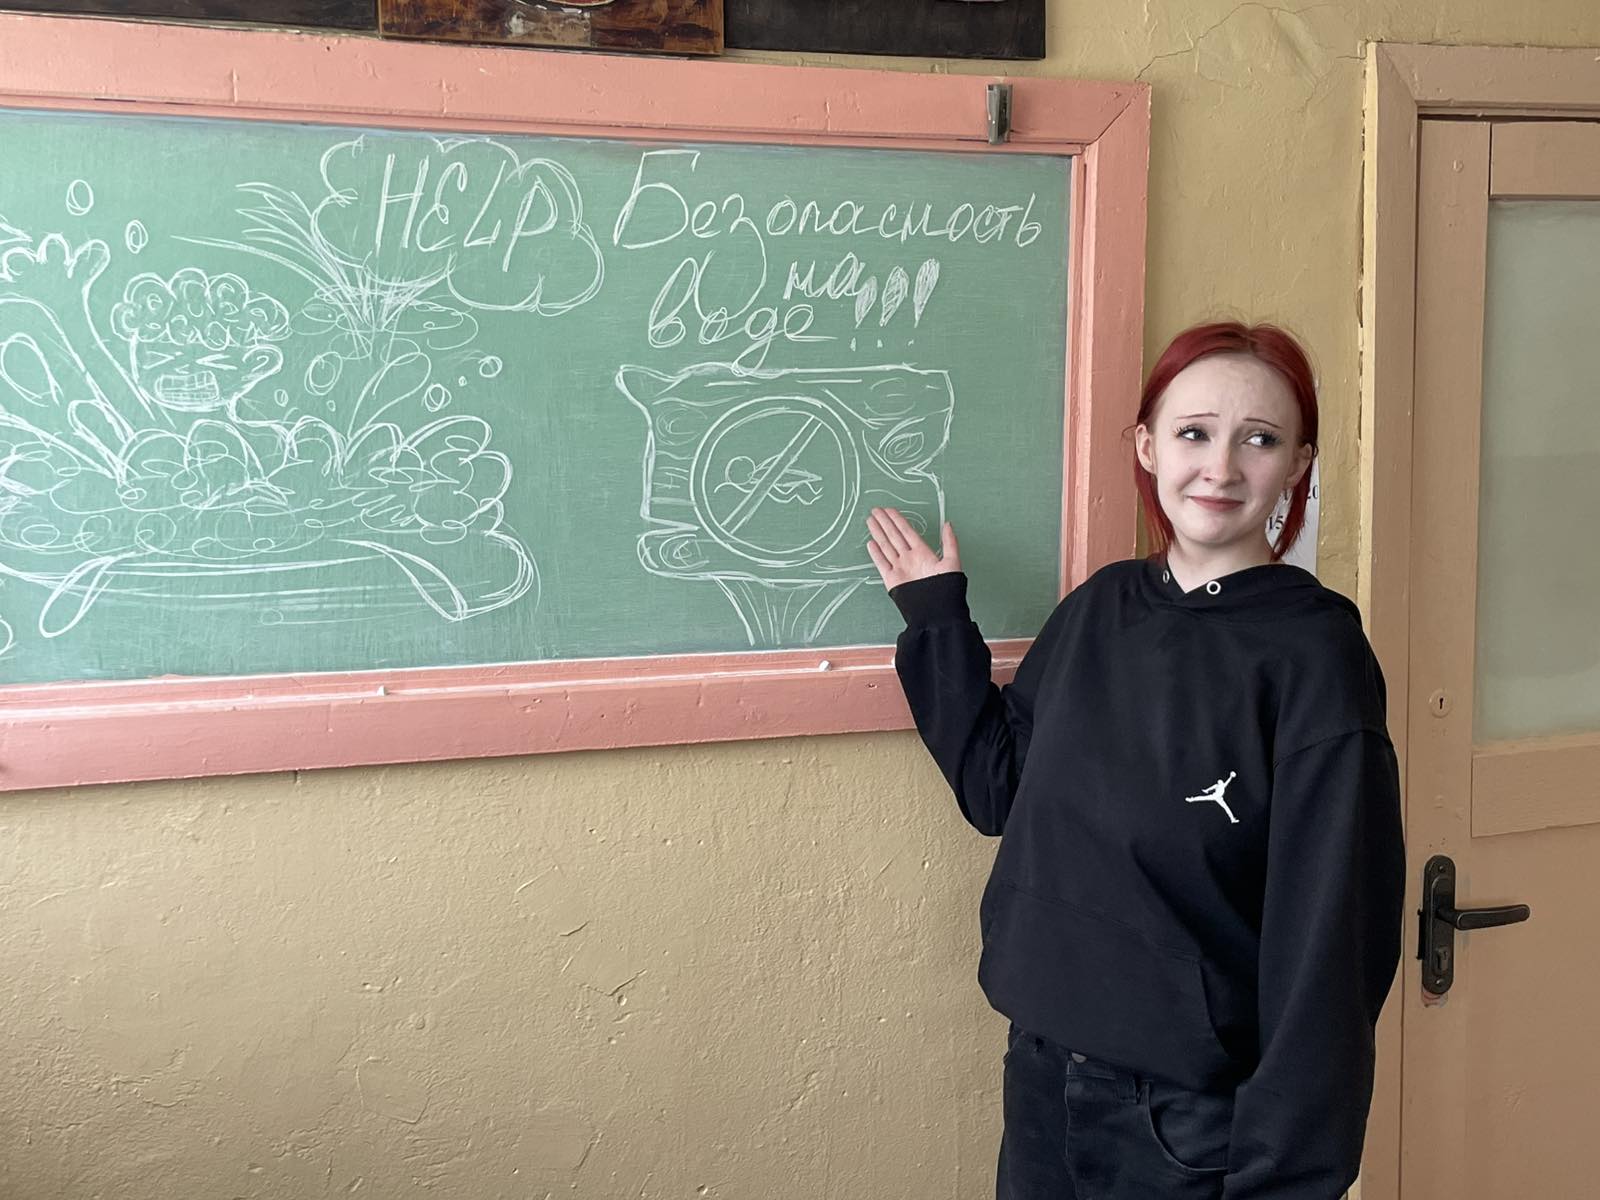 HELP
Безопасность
на
воде!!!
15